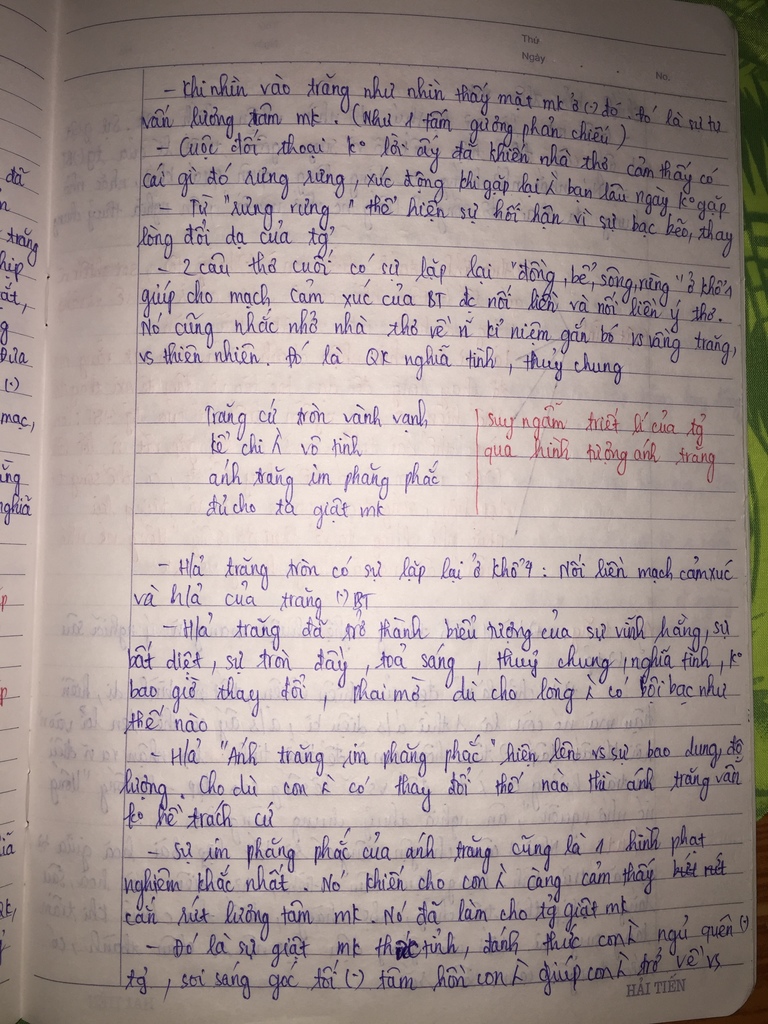 Thứ
Ngày . . No.
- Khi nhìn vào trăng như nhìn thấy mặt mk ở (.) đó. Đó là sự tự
vấn lương tâm mk. (Như 1 tấm gương phản chiếu)
- Cuộc đối thoại ko lời ấy đã khiến nhà thơ cảm thấy có
cái gì đó rưng rưng, xúc động khi gặp lại λ bạn lâu ngày ko gặp
- Từ "rưng rưng" thể hiện sự hối hận vì sự bạc bẽo, thay
lòng đổi dạ của tg'
- 2 câu thơ cuối có sự lặp lại "đồng, bể, sông, rừng" ở khổ 1
giúp cho mạch cảm xúc của BT đc nối liền và nối liền ý thơ.
Nó cũng nhắc nhở nhà thơ về ~n kỉ niệm gắn bó vs vầng trăng,
vs thiên nhiên. Đó là QK nghĩa tình, thuỷ chung
Trăng cứ tròn vành vạnh
kể chi λ vô tình
ánh trăng im phăng phắc
đủ cho ta giật mk
suy ngẫm triết lí của tg'
qua hình tượng ánh trăng
- H/ả trăng tròn có sự lặp lại ở khổ 4: Nối liền mạch cảm xúc
và h/ả của trăng (.) BT
- H/ả trăng đã trở thành biểu tượng của sự vĩnh hằng, sự
bất diệt, sự tròn đầy, toả sáng, thuỷ chung, nghĩa tình, ko
bao giờ thay đổi, phai mờ dù cho lòng λ có bôi bạc như
thế nào
- H/ả "Ánh trăng im phăng phắc" hiện lên vs sự bao dung, độ
lượng. Cho dù con λ có thay đổi thế nào thì ánh trăng vẫn
ko hề trách cứ
- Sự im phăng phắc của ánh trăng cũng là 1 hình phạt
nghiêm khắc nhất. Nó khiến cho con λ càng cảm thấy
cắn rứt lương tâm mk. Nó đã làm cho tg' giật mk
- Đó là sự giật mk thức tỉnh, đánh thức con λ ngủ quên (.)
tg', soi sáng góc tối (.) tâm hồn con λ giúp con λ trở về vs
HẢI TIẾN